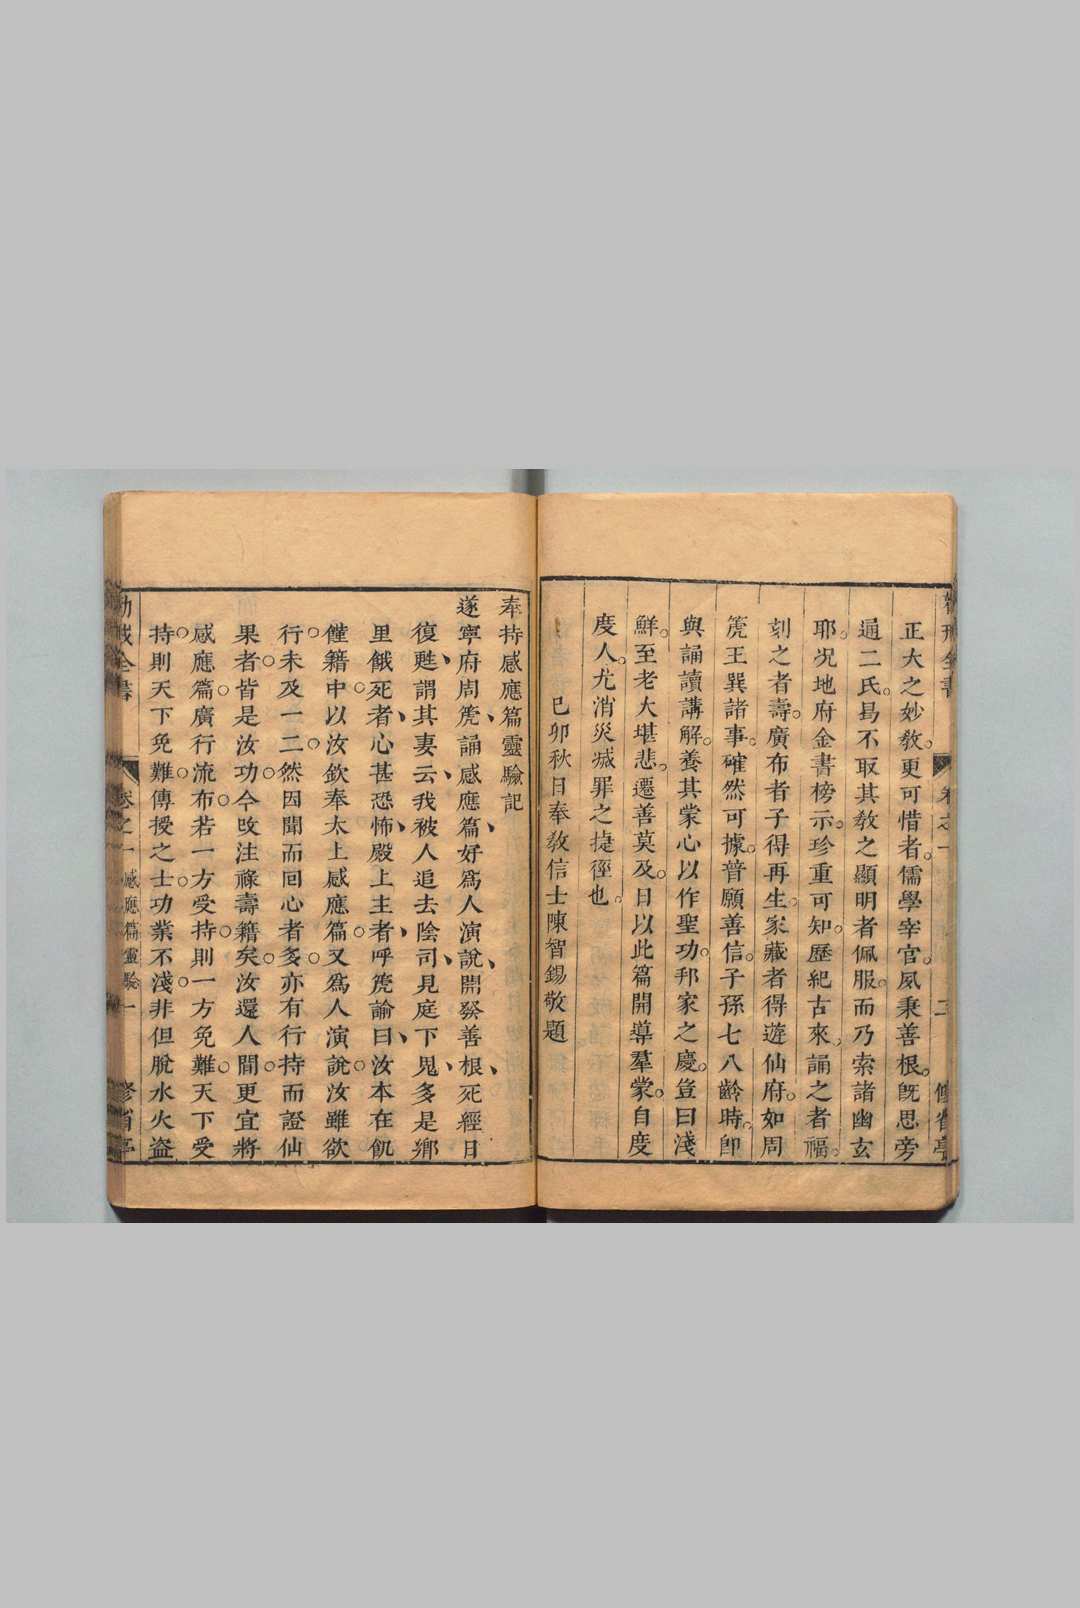 正大之妙教。更可惜者。儒學宰官。夙秉善根。旣思旁
通二氏。曷不取其教之顯明者佩服。而乃索諸幽玄
耶。况地府金書榜示。珍重可知。歷紀古來。誦之者福。
刻之者壽。廣布者子得再生。家藏者得遊仙府。如周
箎王巽諸事。確然可據。普願善信。子孫七八齡時。卽
與誦讀講解。養其蒙心。以作聖功。邦家之慶。豈曰淺
鮮。至老大堪悲。遷善莫及。日以此篇開導羣蒙。自度
度人。尤消災滅罪之捷徑也。
己卯秋日奉教信士陳智錫敬題
卷之一
三
修省亭
奉持感應篇靈驗記
遂寧府周箎、誦感應篇、好爲人演說、開發善根、死經日
復甦、謂其妻云、我被人追去、陰司見庭下鬼、多是鄉
里餓死者、心甚恐怖、殿上主者、呼箎諭曰、汝本在飢
饉籍中。以汝欽奉太上感應篇。又爲人演說。汝雖欲
行。未及一二。然因聞而回心者多。亦有行持而證仙
果者。皆是汝功。今改注祿壽籍矣。汝還人間。更宜將
感應篇。廣行流布。若一方受持。則一方免難。天下受
持。則天下免難。傳授之士。功業不淺。非但脫水火盜
勸戒全書
卷之一
感應篇靈驗
一
修省亭